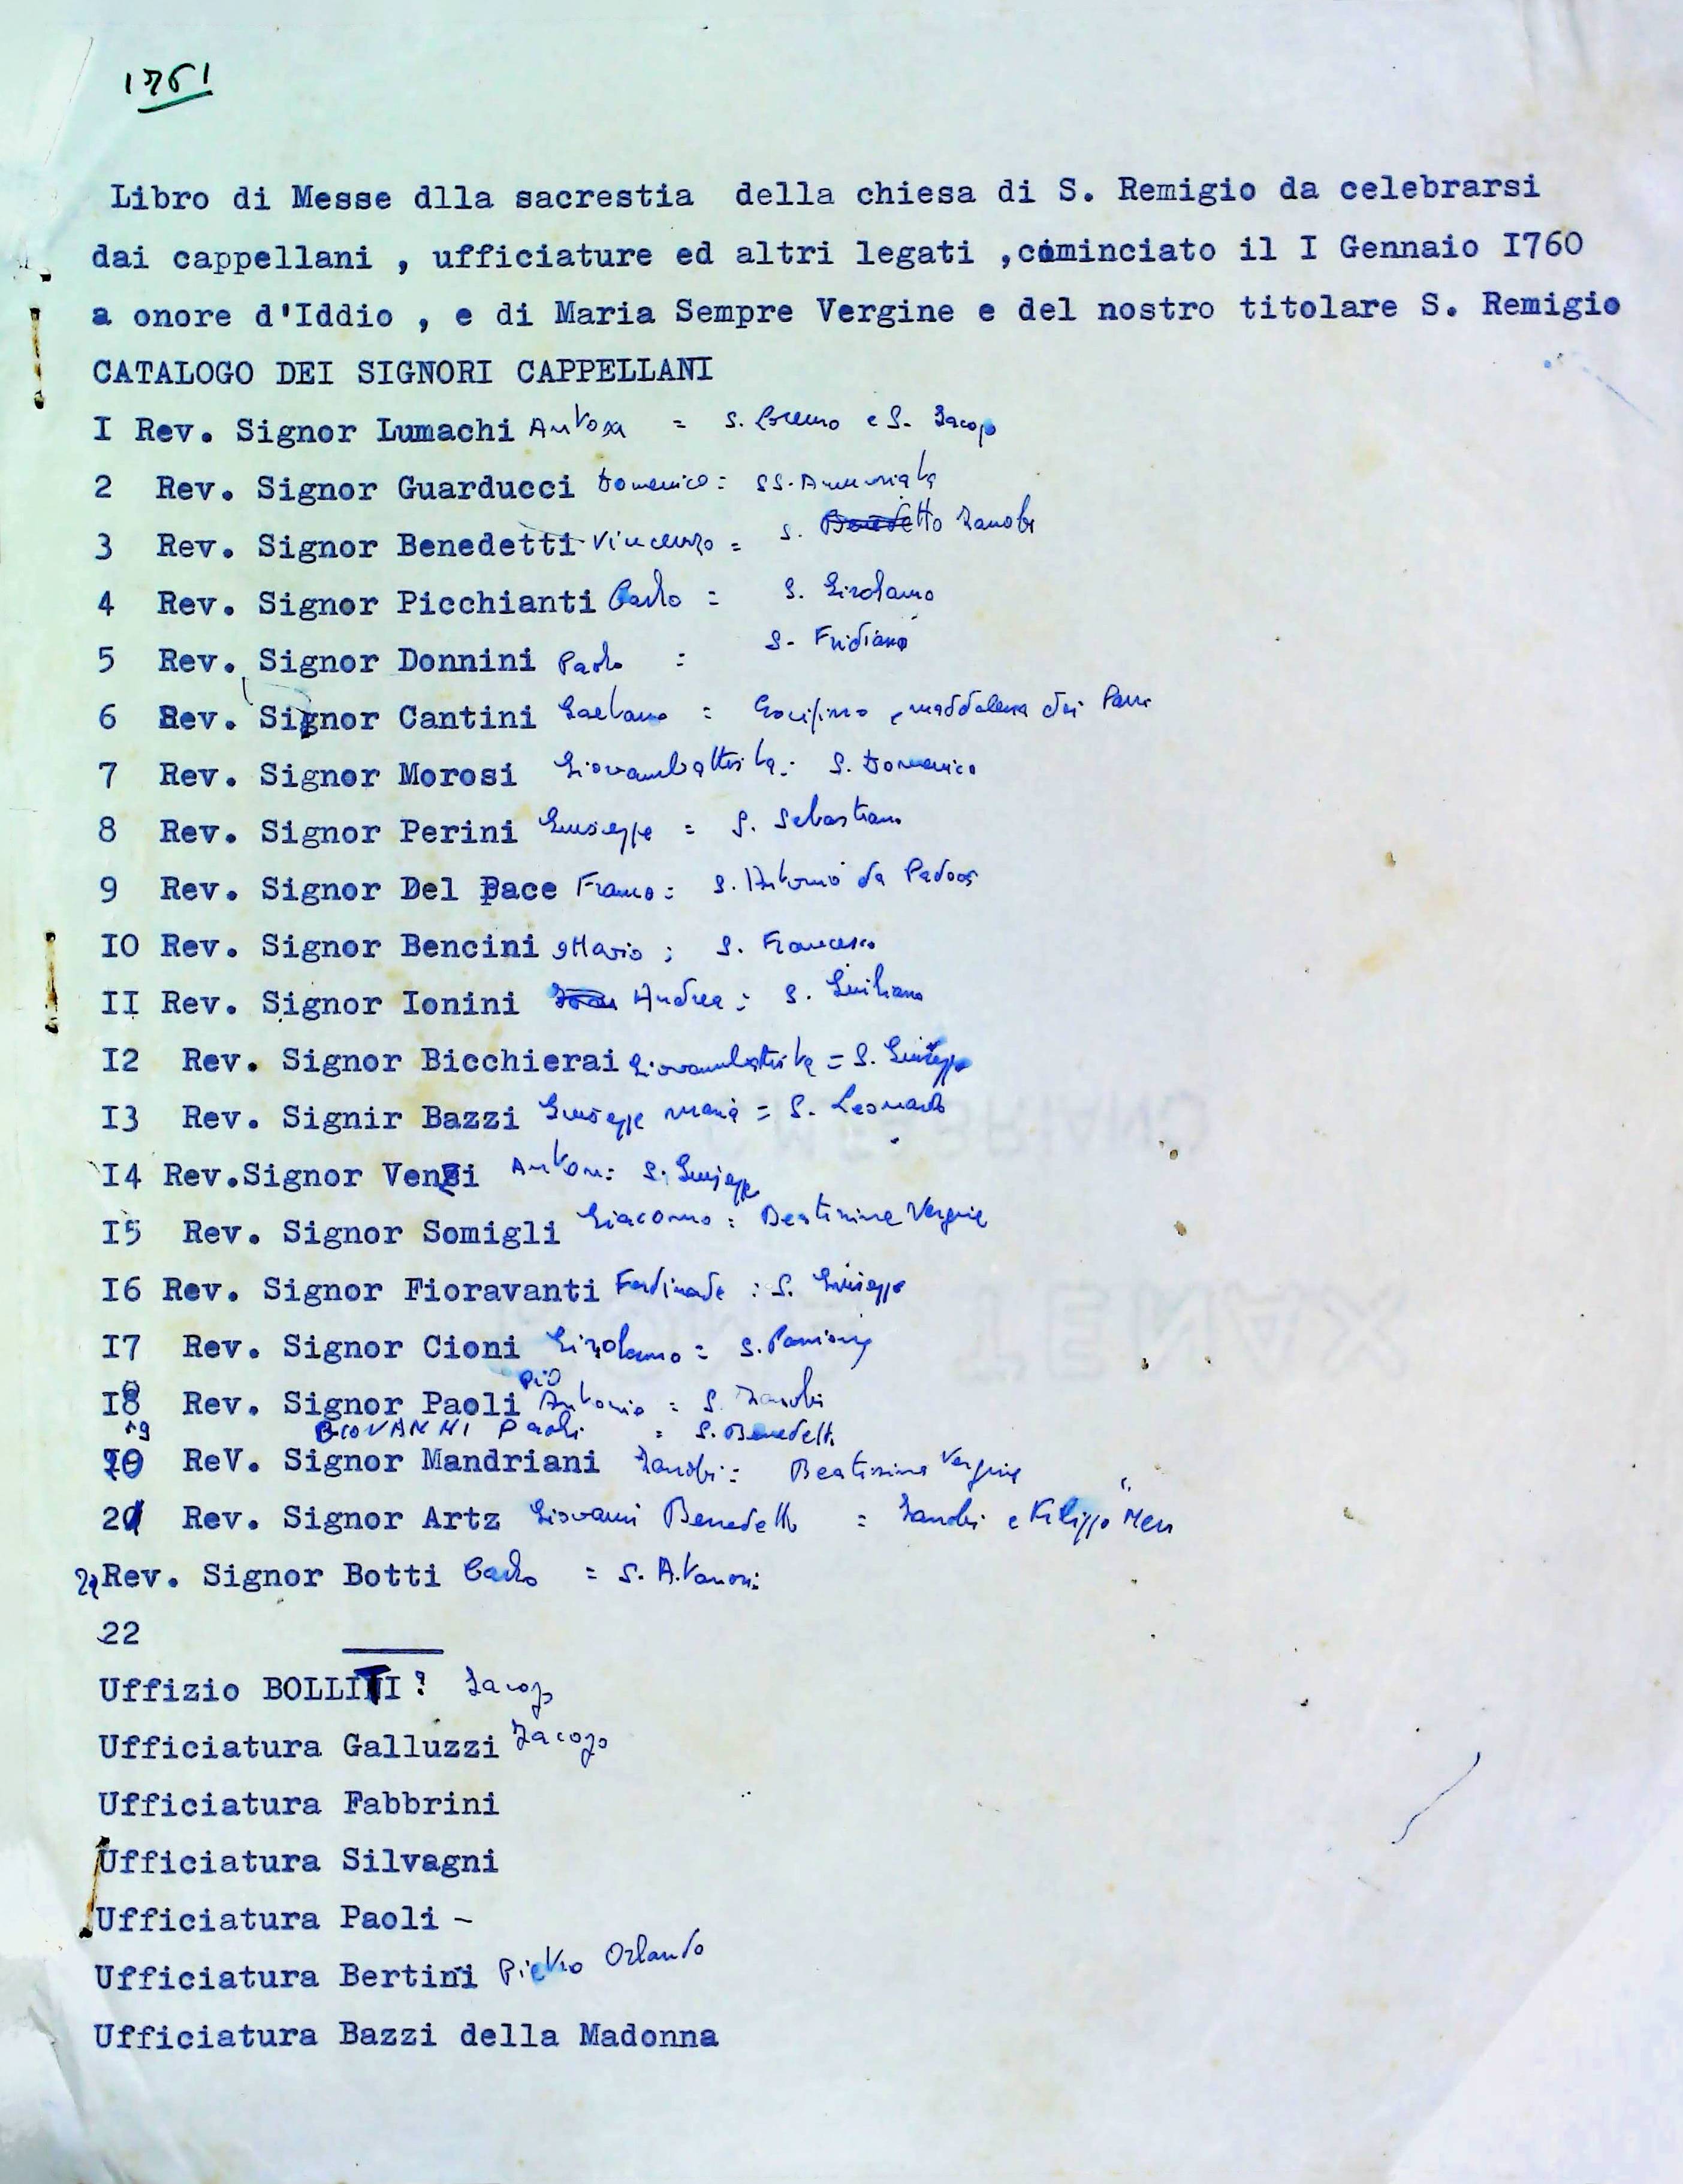 1761
Libro di Messe dlla sacrestia della chiesa di S. Remigio da celebrarsi
dai cappellani , ufficiature ed altri legati ,cominciato il I Gennaio I760
a onore d'Iddio , e di Maria Sempre Vergine e del nostro titolare S. Remigio
CATALOGO DEI SIGNORI CAPPELLANI
I Rev. Signor Lumachi = S. Lorenzo e S. Jacopo
2 Rev. Signor Guarducci Domenico: SS. Annunziata
3 Rev. Signor Benedetti Vincenzo = S. Benedetto Zanobi
4 Rev. Signor Picchianti Carlo = S. Girolamo
5 Rev. Signor Donnini Paolo = S. Fridiano
6 Rev. Signor Cantini Gaetano = e maddalena dei Pazzi
7 Rev. Signor Morosi Giovambattista: S. Domenico
8 Rev. Signor Perini Giuseppe = S. Sebastiano
9 Rev. Signor Del Pace Franco: S. Antonio da Padova
IO Rev. Signor Bencini Mario ; S. Francesco
II Rev. Signor Ionini Andrea: S. Giuliano
I2 Rev. Signor Bicchierai Giovambattista = S. Giuseppe
I3 Rev. Signir Bazzi Giuseppe maria = S. Leonardo
I4 Rev.Signor Venzi Anton: S. Giuseppe
I5 Rev. Signor Somigli Giacomo: Beatissima Vergine
I6 Rev. Signor Fioravanti : S. Giuseppe
I7 Rev. Signor Cioni Girolamo =
I8 Rev. Signor Paoli Pio Antonio = S. Zanobi
19 GIOVANNI Paoli = S. Benedetto
20 ReV. Signor Mandriani Zanobi: Beatissima Vergine
20 Rev. Signor Artz Giovanni Benedetto = Zanobi e Filippo Neri
21 Rev. Signor Botti Carlo =
22
Uffizio BOLLITI? Jacopo
Ufficiatura Galluzzi Jacopo
Ufficiatura Fabbrini
Ufficiatura Silvagni
Ufficiatura Paoli -
Ufficiatura Bertini Pietro Orlando
Ufficiatura Bazzi della Madonna